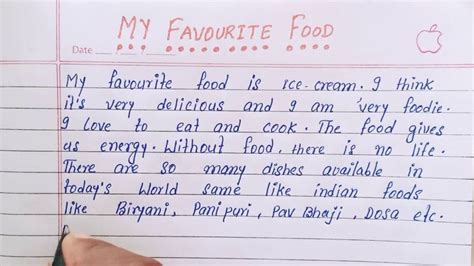 MY FAVOURITE FOOD
Date
My favourite food is ice-cream. I think
it's very delicious and I am very foodie.
I love to eat and cook. The food gives
us energy. Without food, there is no life.
There are so many dishes available in
today's world same like indian foods
like Biryani, Pani puri, Pav Bhaji, Dosa etc.